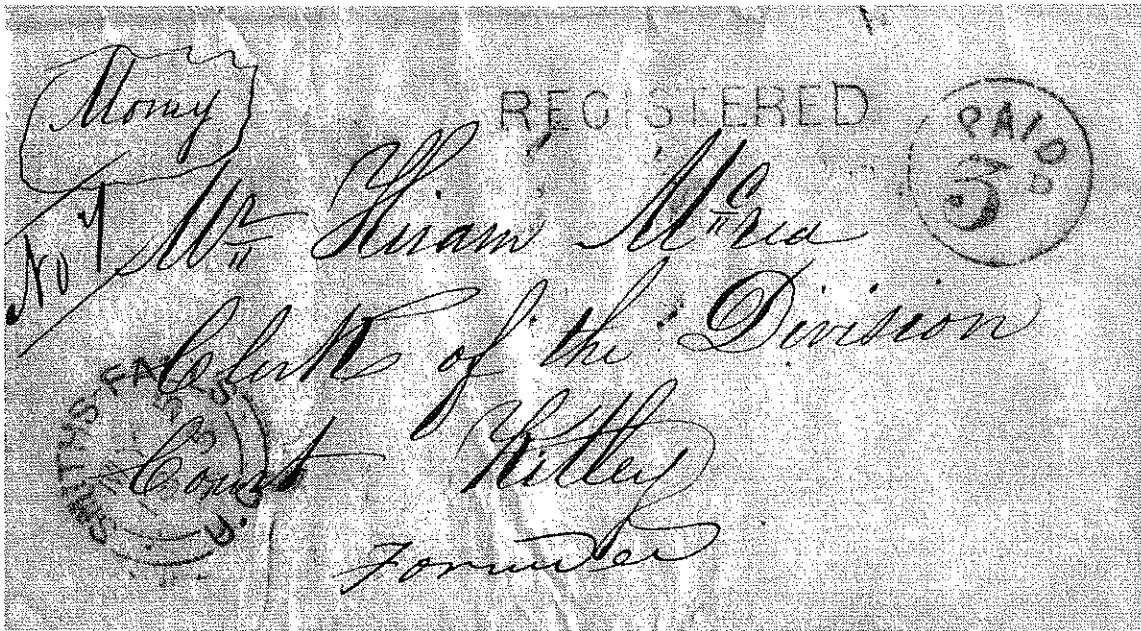 Money
REGISTERED
PAID
3
D
No 7
Mr Hiram McCrea
Clerk of the Division
Court Kitley
SMITHS FALLS
U.C.